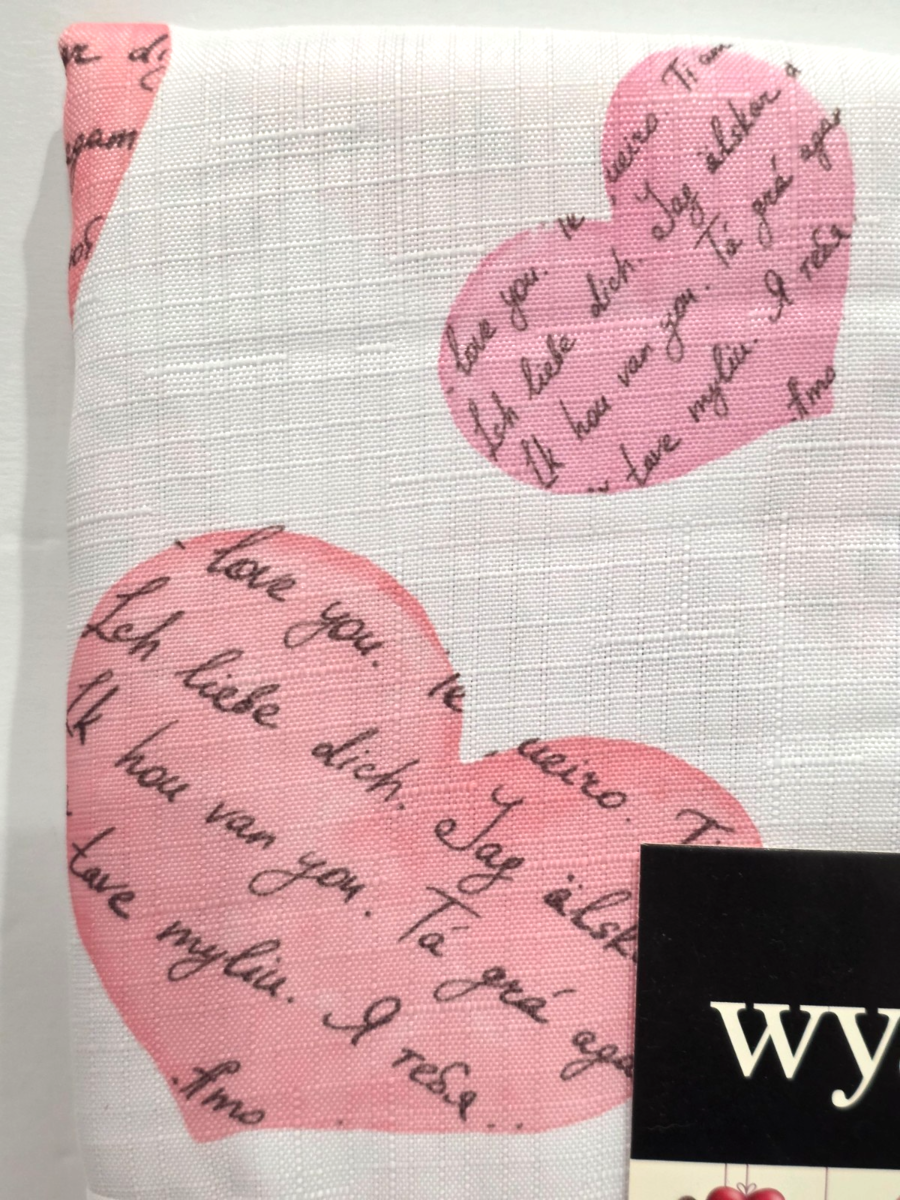 agam
love you. Te
ueiro. Ti am
Ich liebe dich. Jag älskar
Ik hou van you. Tá grá agam
tave myliu. Я тебя
Amo
love you. Te
ueiro. Ti
Ich liebe dich. Jag älska
Ik hou van you. Tá grá aga
tave myliu. Я тебя
Amo
wy